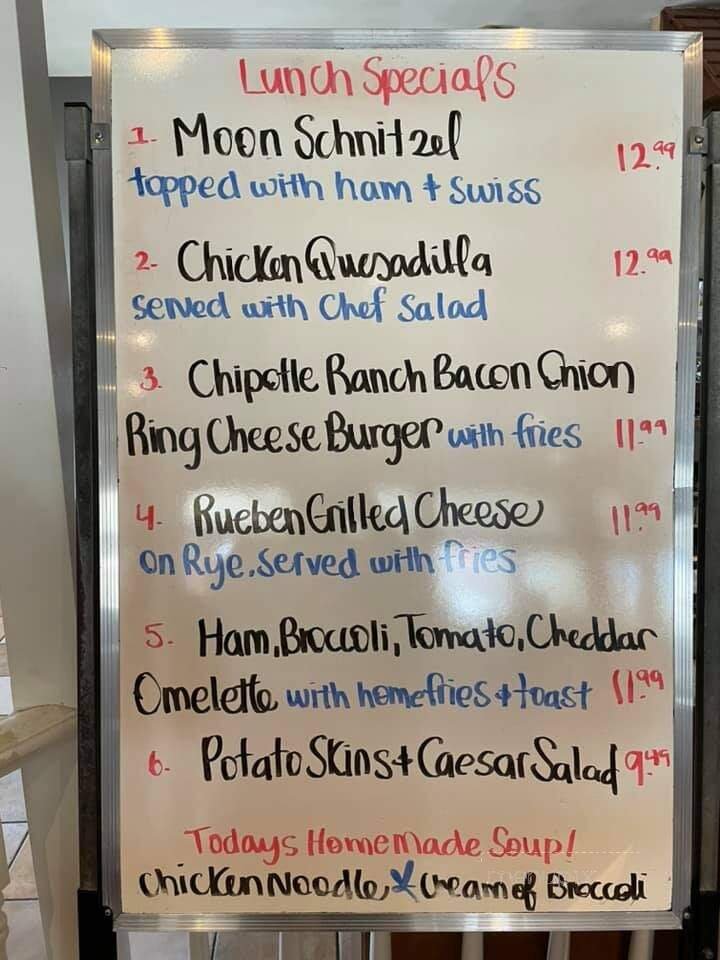 Lunch Specials
1. Moon Schnitzel 12.99
topped with ham + Swiss
2- Chicken Quesadilla 12.99
Served with Chef Salad
3. Chipotle Ranch Bacon Onion
Ring Cheese Burger with fries 11.99
4. Rueben Grilled Cheese 11.99
on Rye. Served with fries
5. Ham, Broccoli, Tomato, Cheddar
Omelette with homefries + toast 11.99
6- Potato Skins + Caesar Salad 9.49
Todays Homemade Soup!
Chicken Noodle Cream of Broccoli